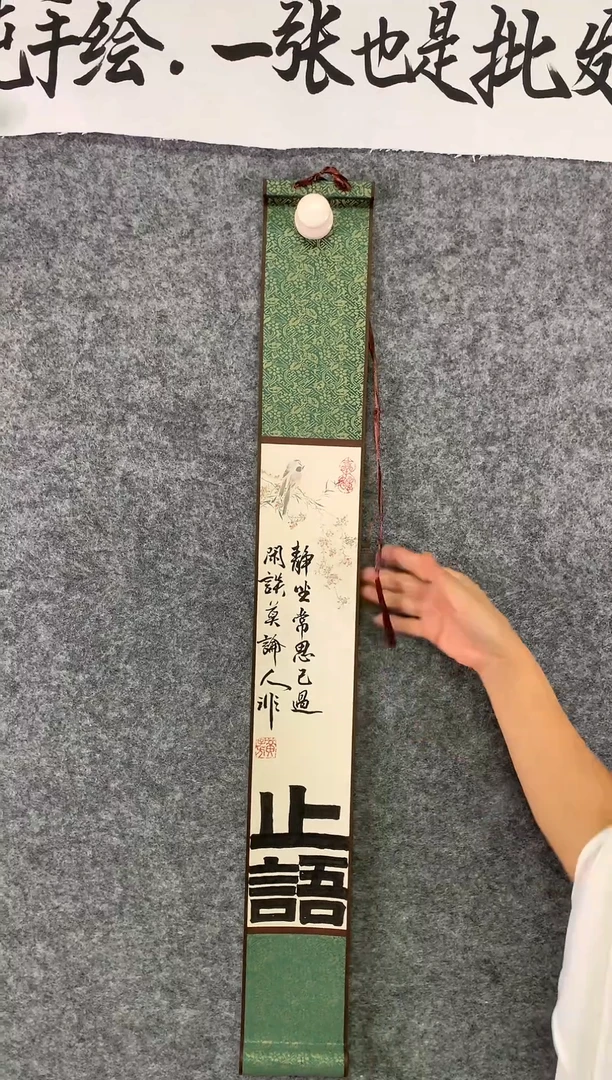 纯手绘.一张也是批发
靜坐常思己過
閑談莫論人非
止語